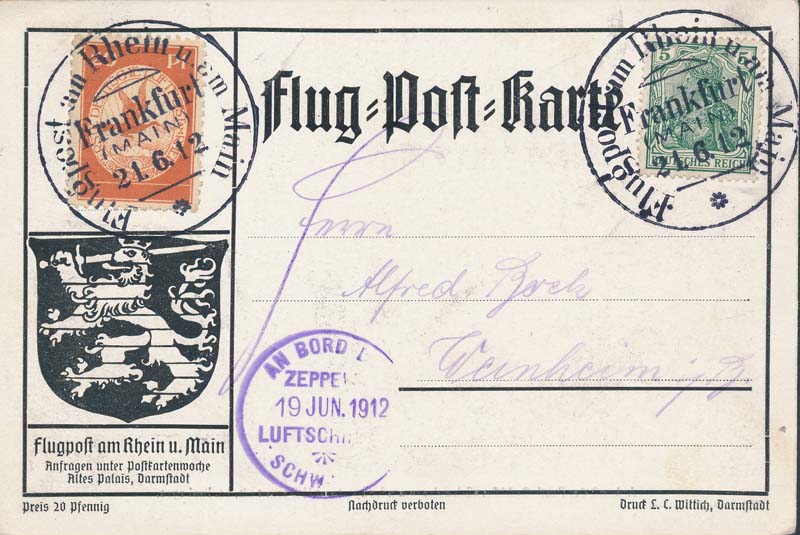 Flugpost am Rhein u. am Main
Frankfurt
(MAIN)
21.6.12
Flug-Post-Karte
5
Flugpost am Rhein u. am Main
Frankfurt
(MAIN)
21.6.12
DEUTSCHES REICH
Herrn
Alfred Bock
Weinheim i/B.
AN BORD
ZEPPE
19 JUN. 1912
LUFTSCH
SCHW
Flugpost am Rhein u. Main
Anfragen unter Postkartenwoche
Altes Palais, Darmstadt
Preis 20 Pfennig
Nachdruck verboten
Druck L. C. Wittich, Darmstadt